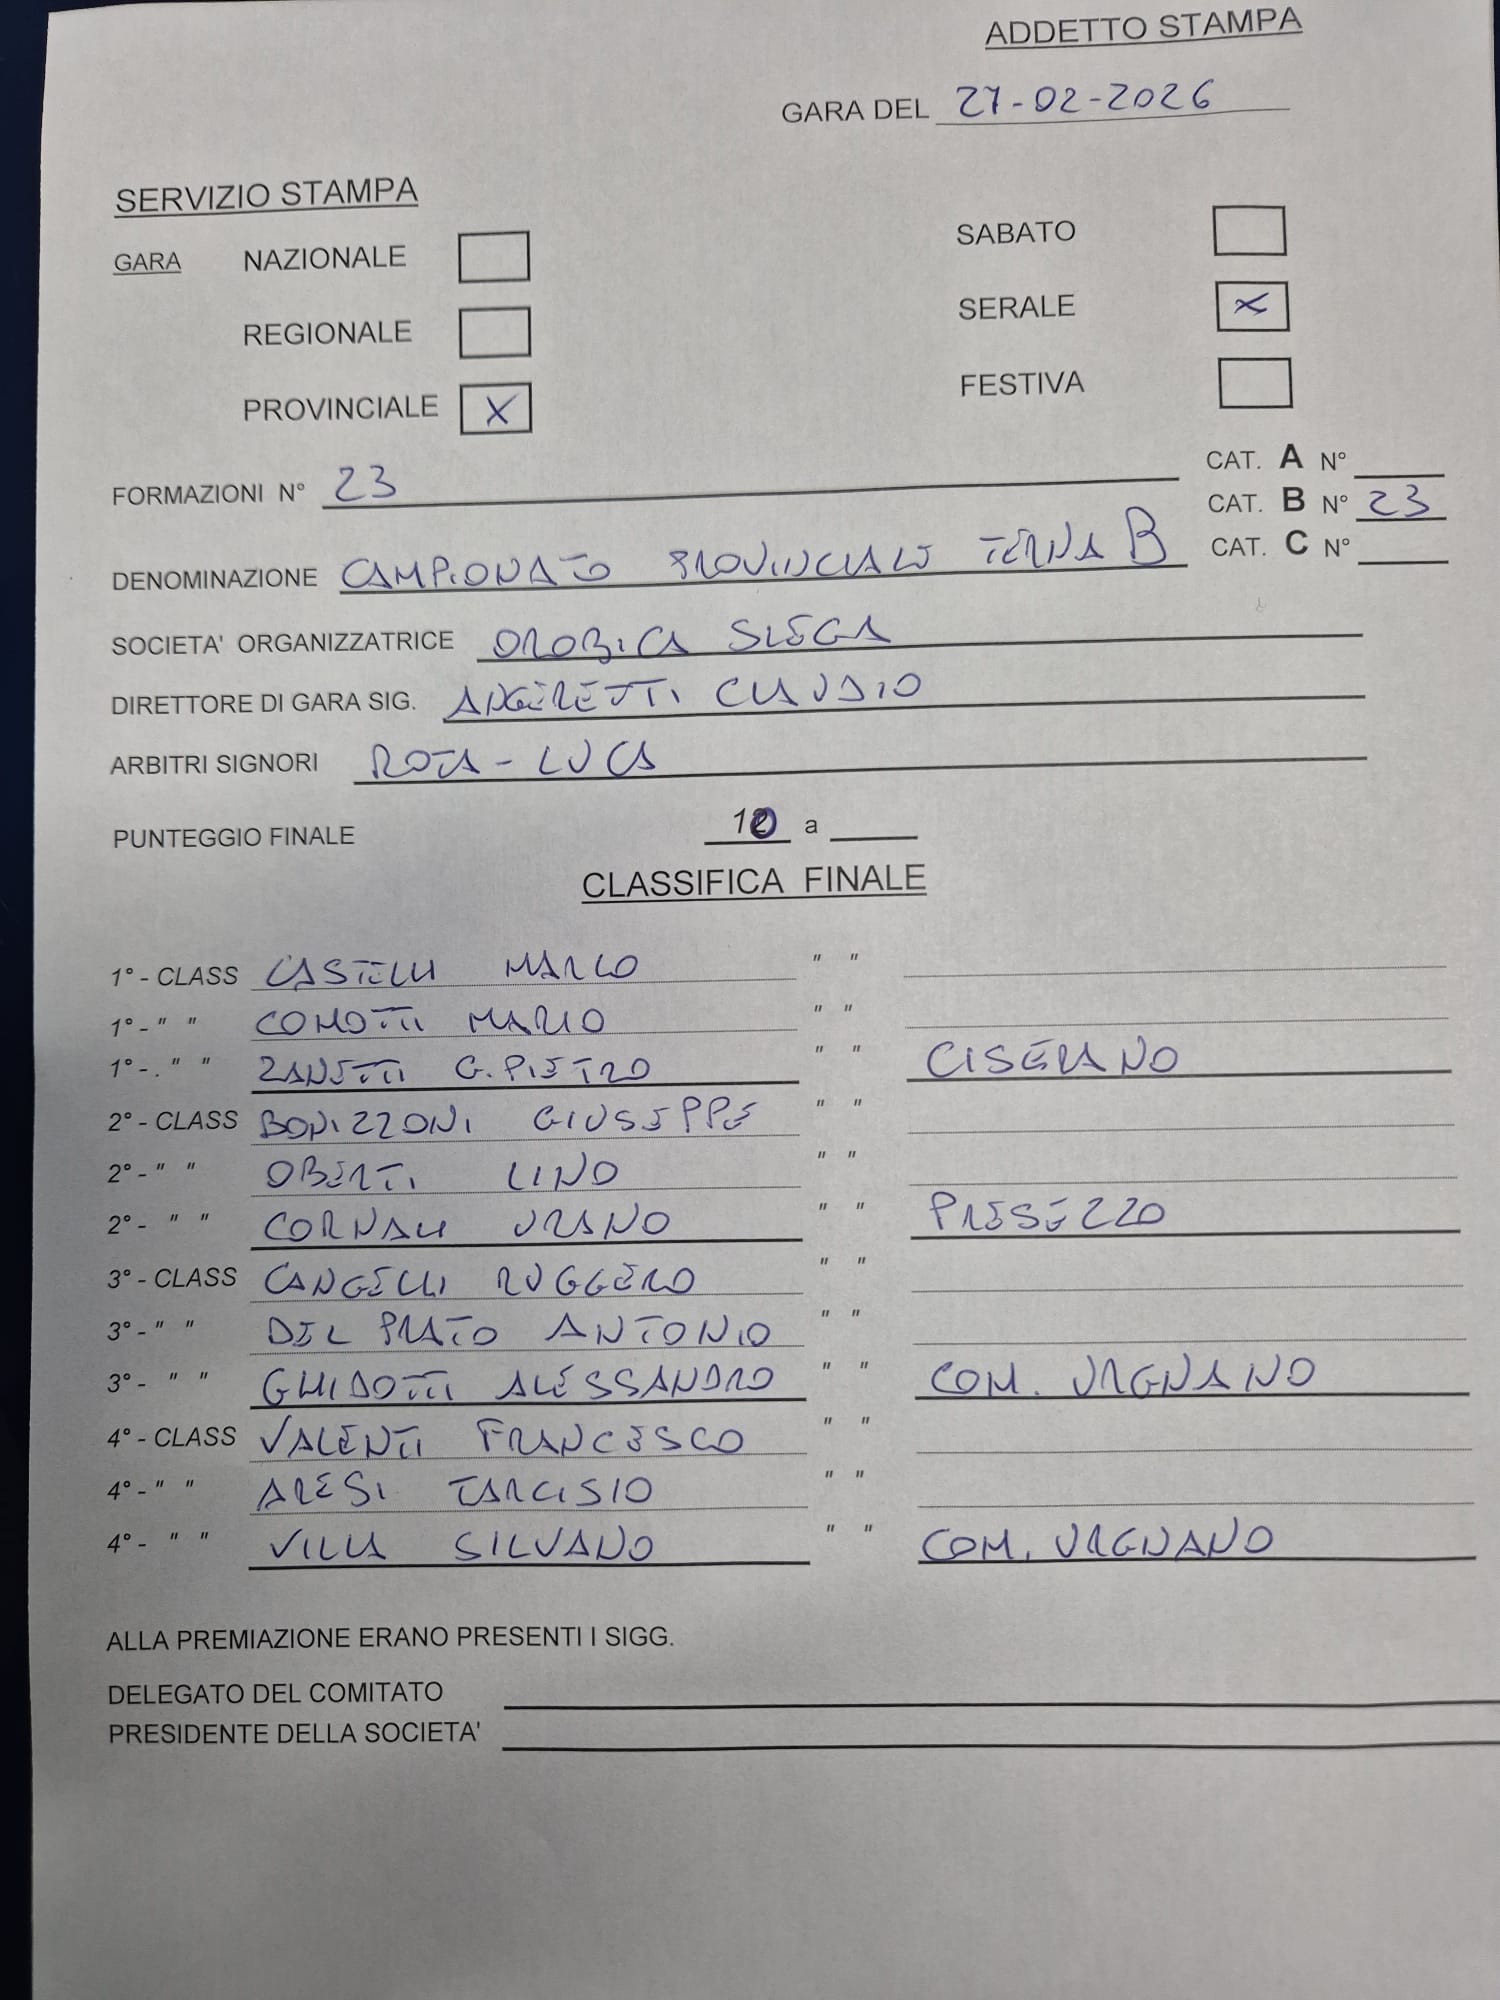 ADDETTO STAMPA
GARA DEL 27-02-2026
SERVIZIO STAMPA
GARA NAZIONALE SABATO
REGIONALE SERALE X
PROVINCIALE X FESTIVA
CAT. A N°
FORMAZIONI N° 23 CAT. B N° 23
CAT. C N°
DENOMINAZIONE CAMPIONATO PROVINCIALE TERNA B
SOCIETA' ORGANIZZATRICE OROBICA SLEGA
DIRETTORE DI GARA SIG. ANGERETTI CLAUDIO
ARBITRI SIGNORI ROTA - LUCA
PUNTEGGIO FINALE 10 a
CLASSIFICA FINALE
1° - CLASS CASTELLI MARCO " "
1° - " " COMOTTI MARIO " "
1° - . " " ZANETTI G. PIETRO " " CISERANO
2° - CLASS BONIZZONI GIUSEPPE " "
2° - " " OBERTI LINO " "
2° - " " CORNALI URANO " " PRESEZZO
3° - CLASS CANGELLI RUGGERO " "
3° - " " DEL PRATO ANTONIO " "
3° - " " GHIDOTTI ALESSANDRO " " COM. URGNANO
4° - CLASS VALENTI FRANCESCO " "
4° - " " ARESI TARCISIO " "
4° - " " VILLA SILVANO " " COM. URGNANO
ALLA PREMIAZIONE ERANO PRESENTI I SIGG.
DELEGATO DEL COMITATO
PRESIDENTE DELLA SOCIETA'